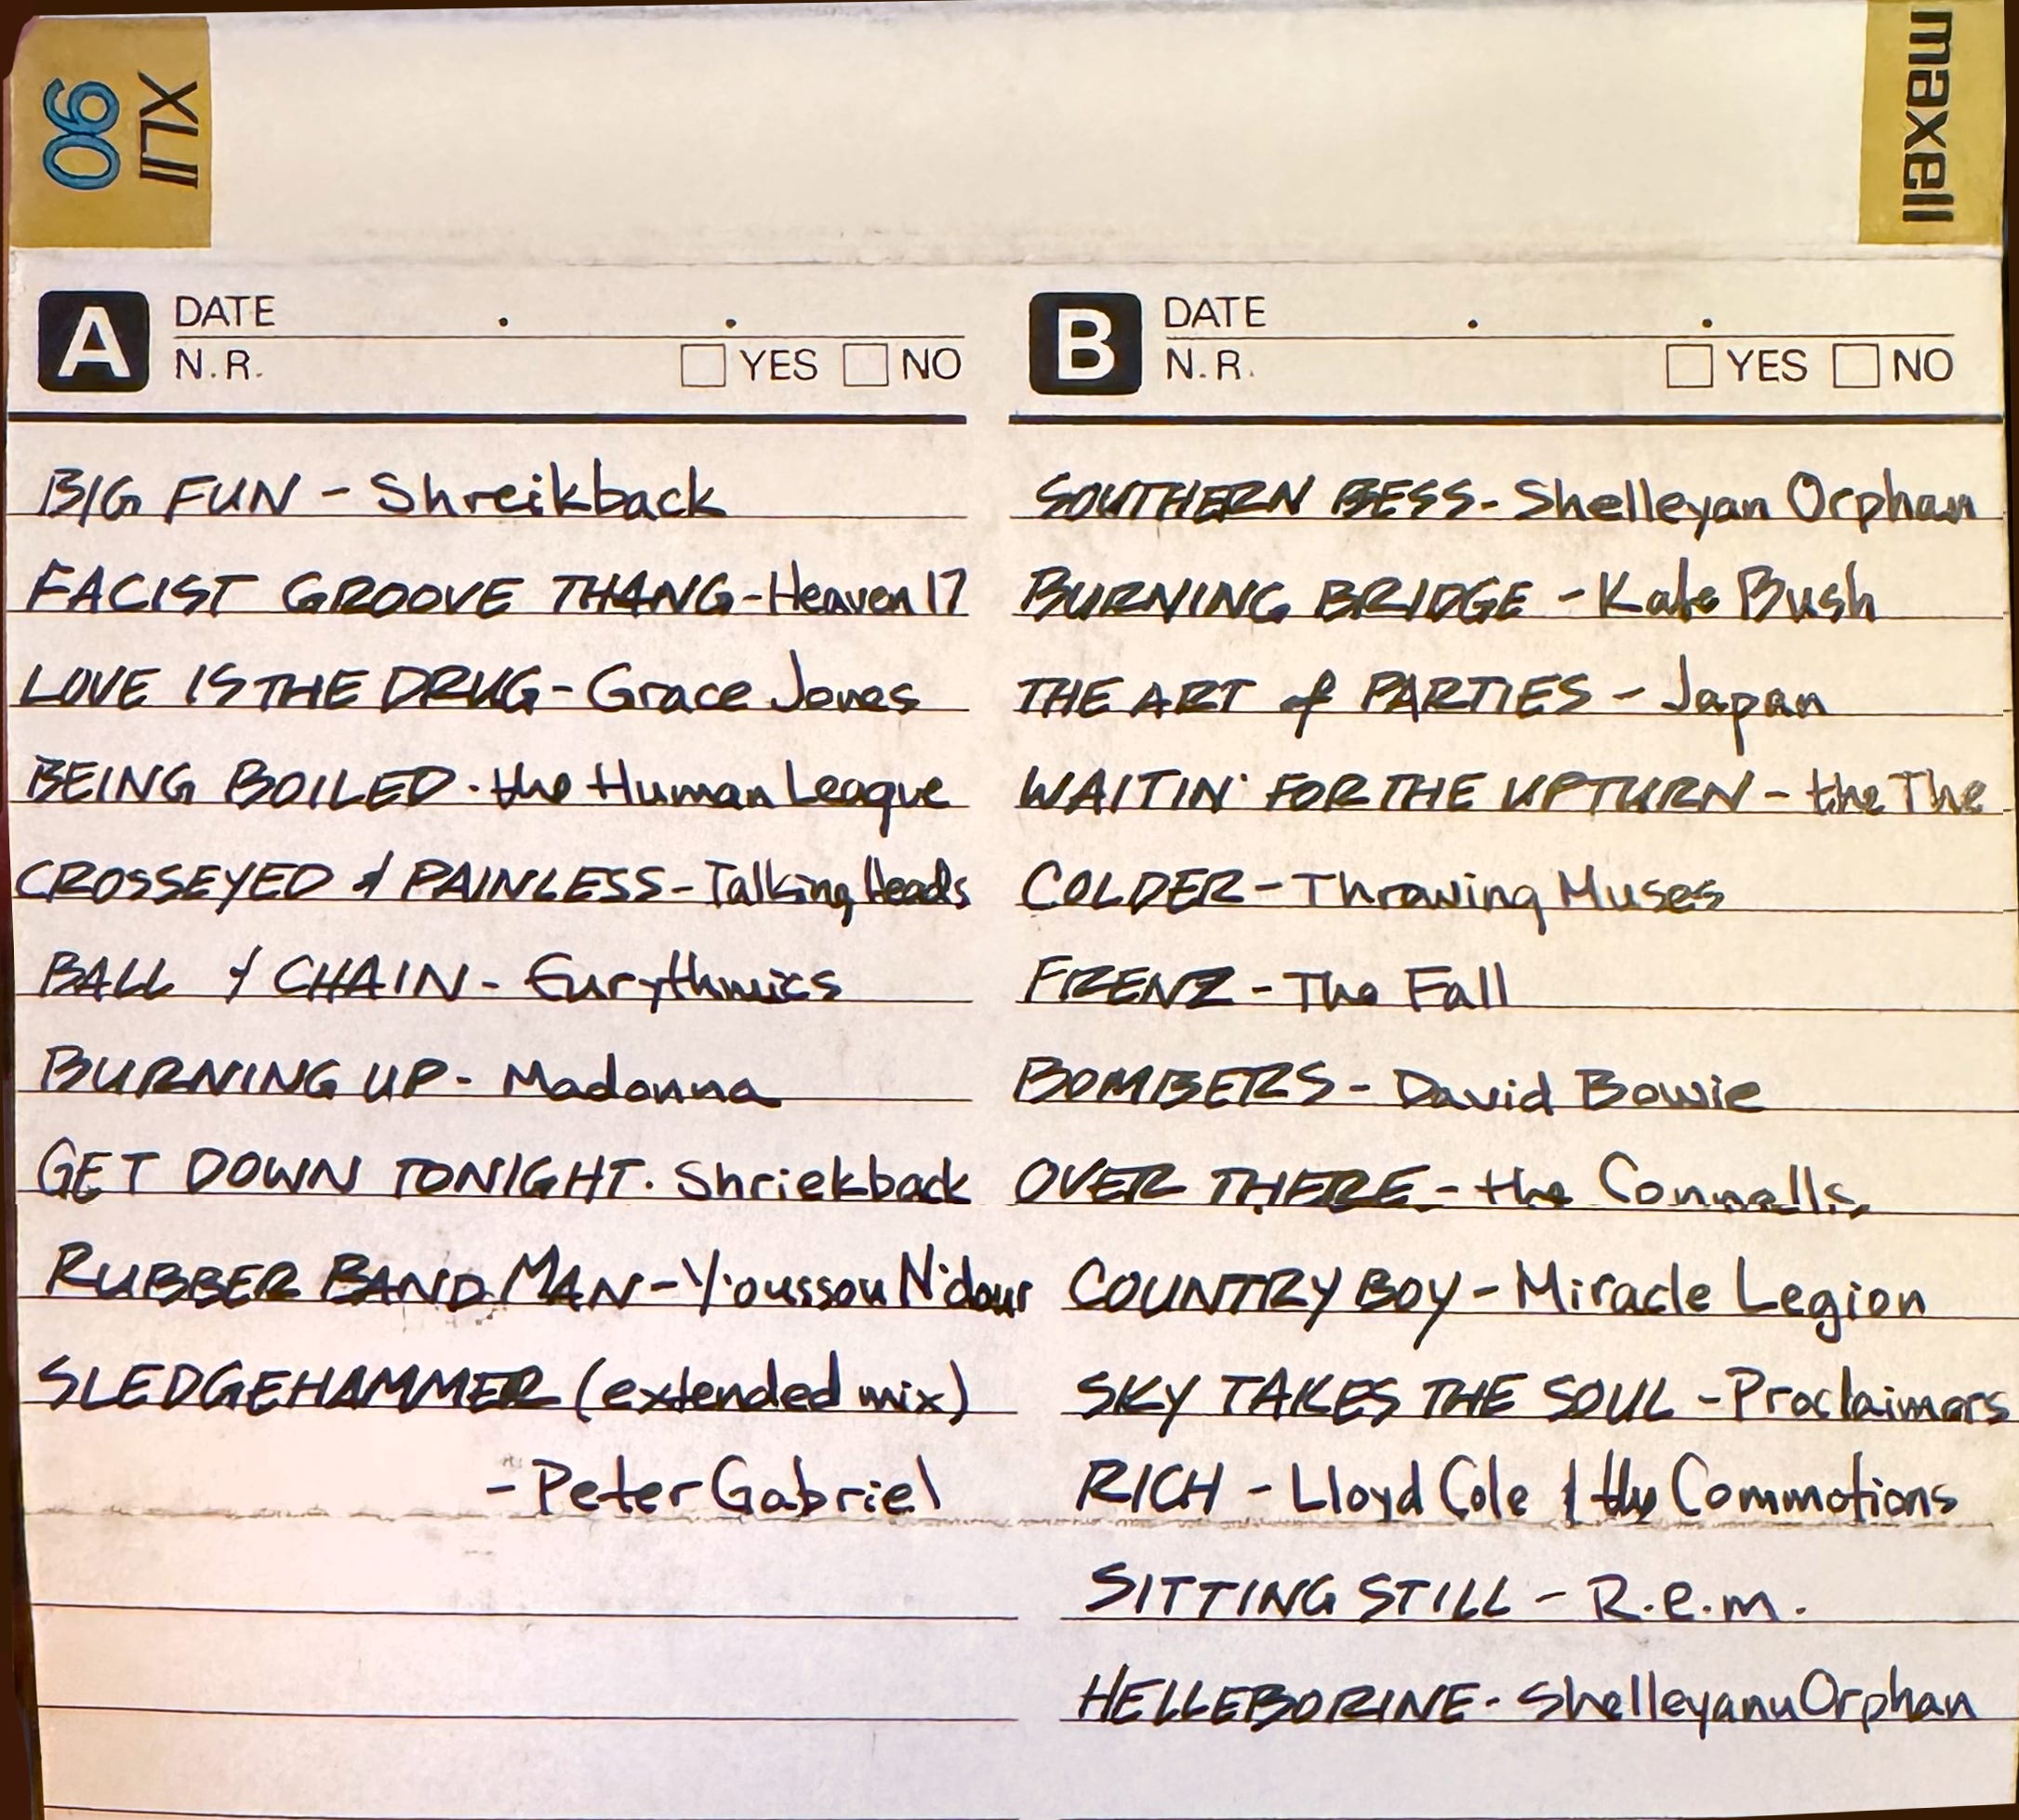 XLII
90
maxell
A
DATE . .
N.R. YES NO
BIG FUN - Shreikback
FACIST GROOVE THANG - Heaven 17
LOVE IS THE DRUG - Grace Jones
BEING BOILED - the Human League
CROSSEYED & PAINLESS - Talking Heads
BALL & CHAIN - Eurythmics
BURNING UP - Madonna
GET DOWN TONIGHT - Shriekback
RUBBER BAND MAN - Youssou N'dour
SLEDGEHAMMER (extended mix)
- Peter Gabriel
B
DATE . .
N.R. YES NO
SOUTHERN BESS - Shelleyan Orphan
BURNING BRIDGE - Kate Bush
THE ART of PARTIES - Japan
WAITIN' FOR THE UPTURN - the The
COLDER - Throwing Muses
FRENZ - The Fall
BOMBERS - David Bowie
OVER THERE - the Connells
COUNTRY BOY - Miracle Legion
SKY TAKES THE SOUL - Proclaimers
RICH - Lloyd Cole & the Commotions
SITTING STILL - R.e.m.
HELLEBORINE - Shelleyanu Orphan